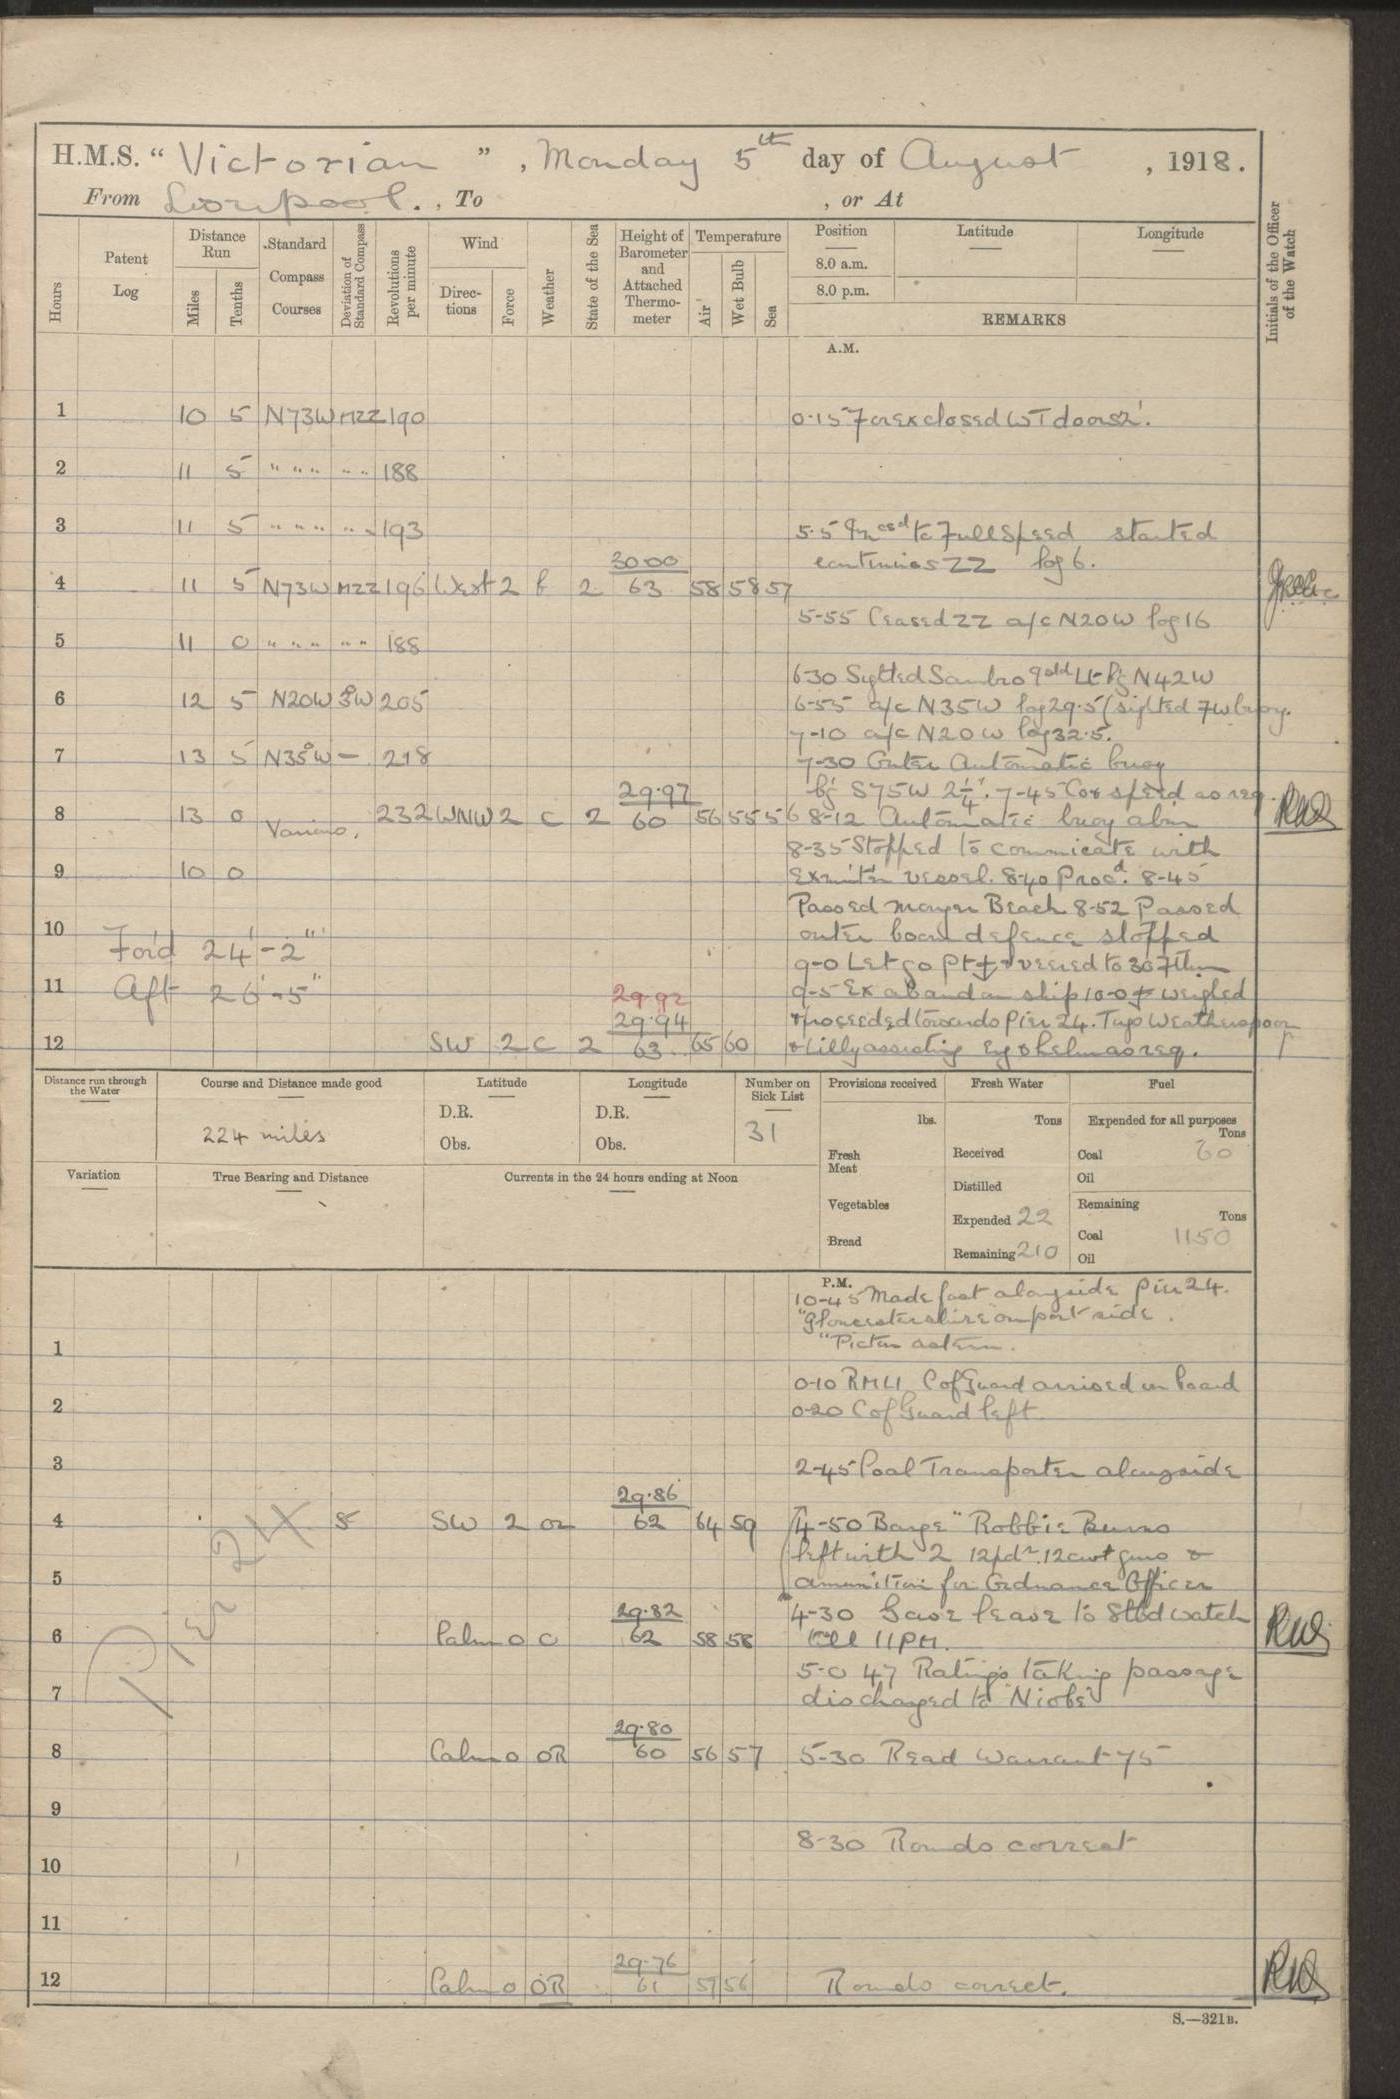 H.M.S. “ Victorian ” , Monday 5th day of August , 1918.
From Liverpool. , To , or At
Hours
Patent Log
Distance Run
Miles
Tenths
Standard Compass Courses
Deviation of Standard Compass
Revolutions per minute
Wind
Directions
Force
Weather
State of the Sea
Height of Barometer and Attached Thermometer
Temperature
Air
Wet Bulb
Sea
Position
8.0 a.m.
8.0 p.m.
Latitude
Longitude
REMARKS
Initials of the Officer of the Watch
A.M.
1 10 5 N73W MZZ 190 0.15 closed WT doors
2 11 5 " " " " " 188
3 11 5 " " " " " 193 5.5 to Full Speed started
30.00 ZZ log 6.
4 11 5 N73W MZZ 196 West 2 b 2 63 58 58 57
5-55 Ceased ZZ a/c N20W log 16
5 11 0 " " " " " 188
6-30 Sighted Sambro N42W
6 12 5 N20W 3°W 205 6-55 a/c N35W log 29.5 (sighted buoy.
7-10 a/c N20W log 32.5.
7 13 5 N35°W - 218 7-30 Outer Automatic buoy
29.97 S75W 2¼'. 7-45 Co & speed as req.
8 13 0 Various. 232 WNW 2 c 2 60 56 55 56 8-12 Automatic buoy abm RWS
8-35 Stopped to commicate with
9 10 0 vessel. 8.40 Procd. 8-45
Passed Beach 8-52 Passed
10 outer boom defence stopped
For'd 24'-2" 9-0 Let go Pt & veered to 30
11 Aft 26'-5" 29.92 9-5 Ex abandon ship 10-0 weighed
29.94 & proceeded towards Pier 24. Tugs Weatherspoon
12 SW 2 c 2 63 65 60 & Lilly assisting Eng & helm as req.
Distance run through the Water
Course and Distance made good
224 miles
Latitude
D.R.
Obs.
Longitude
D.R.
Obs.
Number on Sick List
31
Provisions received
lbs.
Fresh Meat
Vegetables
Bread
Fresh Water
Tons
Received
Distilled
Expended 22
Remaining 210
Fuel
Expended for all purposes
Tons
Coal 60
Oil
Remaining
Tons
Coal 1150
Oil
Variation
True Bearing and Distance
Currents in the 24 hours ending at Noon
P.M.
10-45 Made fast alongside Pier 24.
"Gloucestershire" on port side.
1 "Picton astern.
0-10 RMLI C of Guard arrived on board
2 0-20 C of Guard left.
3 2-45 Coal Transporter alongside
29.86
4 SW 2 62 64 59 4-50 Barge "Robbie Burns
left with 2 12pdr. 12cwt guns &
5 amunition for Ordnance Officer
29.82 4-30 Gave leave to Stbd watch
6 Calm 0 O 62 58 58 till 11 PM. RWS
5-0 47 Ratings taking passage
7 discharged to "Niobe"
29.80
8 Calm 0 OR 60 56 57 5-30 Read Warrant 75
9
8-30 Rounds correct
10
11
29.76
12 Calm 0 OR 61 57 56 Rounds correct. RWS
Pier 24
S.—321B.